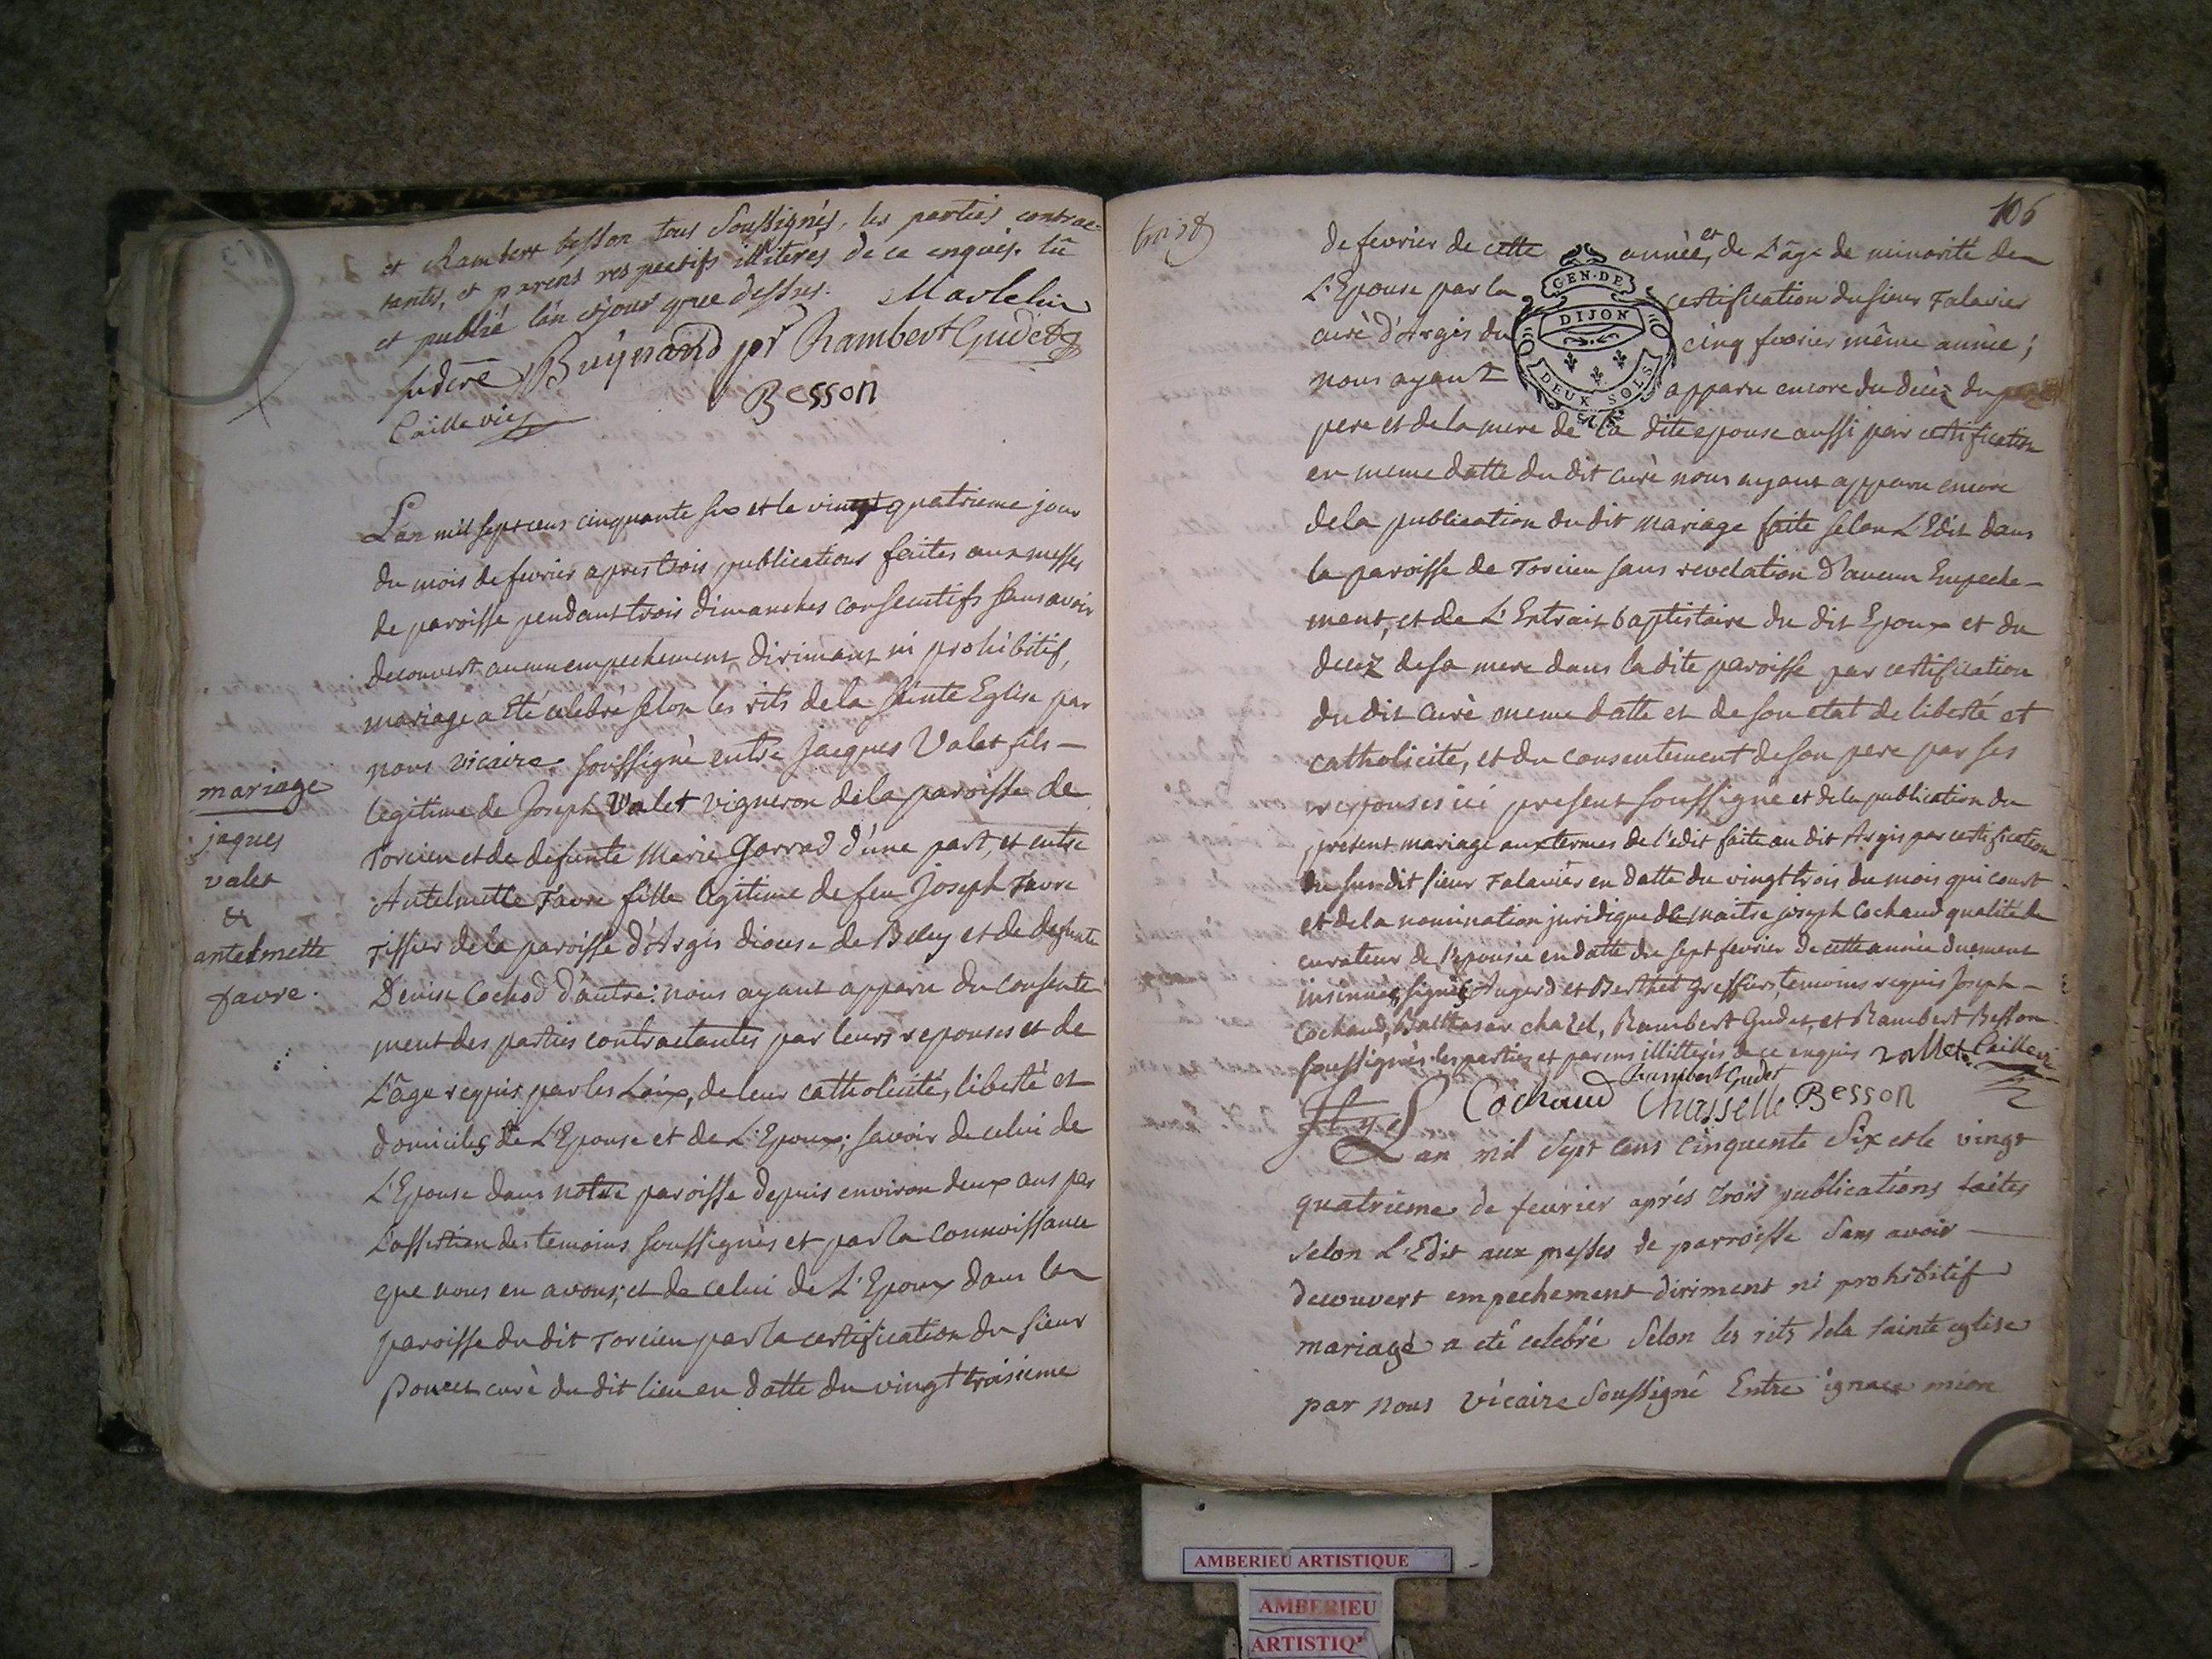 et Rambert besson tous Soussignés, les parties contrac-
tantes, et parens respectifs illiterés de ce enquis. lû
et publié l'an et jour que dessus. Martelin
Buynand pr Rambert Gudet
Caillevie Besson
L'an mil sept cens cinquante six et le vingt quatrieme jour
du mois de fevrier apres trois publications faites aux messes
de paroisse pendant trois dimanches consecutifs sans avoir
decouvert aucun empechement dirimant ni prohibitif,
mariage a été celebré selon les rits de la sainte Eglise par
nous vicaire soussigné entre Jacques Valet fils –
legitime de Joseph Valet vigneron de la paroisse de
Torcieu et de defunte Marie Garrad d'une part, et entre
Antelmette Favre fille legitime de feu Joseph Favre
Tissier de la paroisse d'Argis diocese de Belley et de defunte
Denise Cochod d'autre: nous ayant apparu du consente
ment des parties contractantes par leurs reponses et de
L'âge requis par les Loix, de leur catholicité, liberté et
domiciles de L'Epouse et de L'Epoux; savoir de celui de
L'Epouse dans notre paroisse depuis environ deux ans par
L'assertion des temoins soussignés et par la connoissance
que nous en avons; et de celui de L'Epoux dans la
paroisse du dit Torcieu par la certification du sieur
Poncet curé du dit lieu en datte du vingt troisieme
mariage
jaques
valet
&
antelmette
favre.
106
de fevrier de cette année, et de L'âge de minorité de
L'Epouse par la certification du sieur Falavier
curé d'Argis du cinq fevrier même année;
nous ayant apparu encore du décez du
pere et de la mere de la dite epouse aussi par certification
en meme datte du dit curé nous ayant apparu encore
de la publication du dit mariage faite selon L'Edit dans
la paroisse de Torcieu sans revelation d'aucun Empeche-
ment, et de L'Extrait baptistaire du dit Epoux et du
decez de sa mere dans la dite paroisse par certification
du dit curé meme datte et de son etat de liberté et
catholicité, et du consentement de son pere par ses
reponses ici present soussigné et de la publication du
present mariage aux termes de l'edit faite au dit Argis par certification
du susdit sieur Falavier en datte du vingt trois du mois qui court
et de la nomination juridique de maitre joseph Cochaud qualité de
curateur de l'epouse en datte du sept fevrier de cette année duement
insinuée, signée Augerd et Berthet Greffiers, temoins requis Joseph –
Cochaud, Balthasar chazel, Rambert Gudet, et Rambert Besson
soussignés les parties et parens illitterés de ce enquis vallet Caillevie
Rambert Gudet
Cochaud Chasselle Besson
L'an mil Sept cens Cinquente Six et le vingt
quatrieme de feurier aprés trois publications faites
selon L'Edit aux messes de parroisse Sans avoir –
decouvert empechement diriment ni prohibitif
mariage a eté celebré Selon les rits de la sainte eglise
par nous vicaire Soussigné Entre ignace mion
GEN·DE
DIJON
DEUX SOLS
AMBERIEU ARTISTIQUE
AMBERIEU
ARTISTIQ